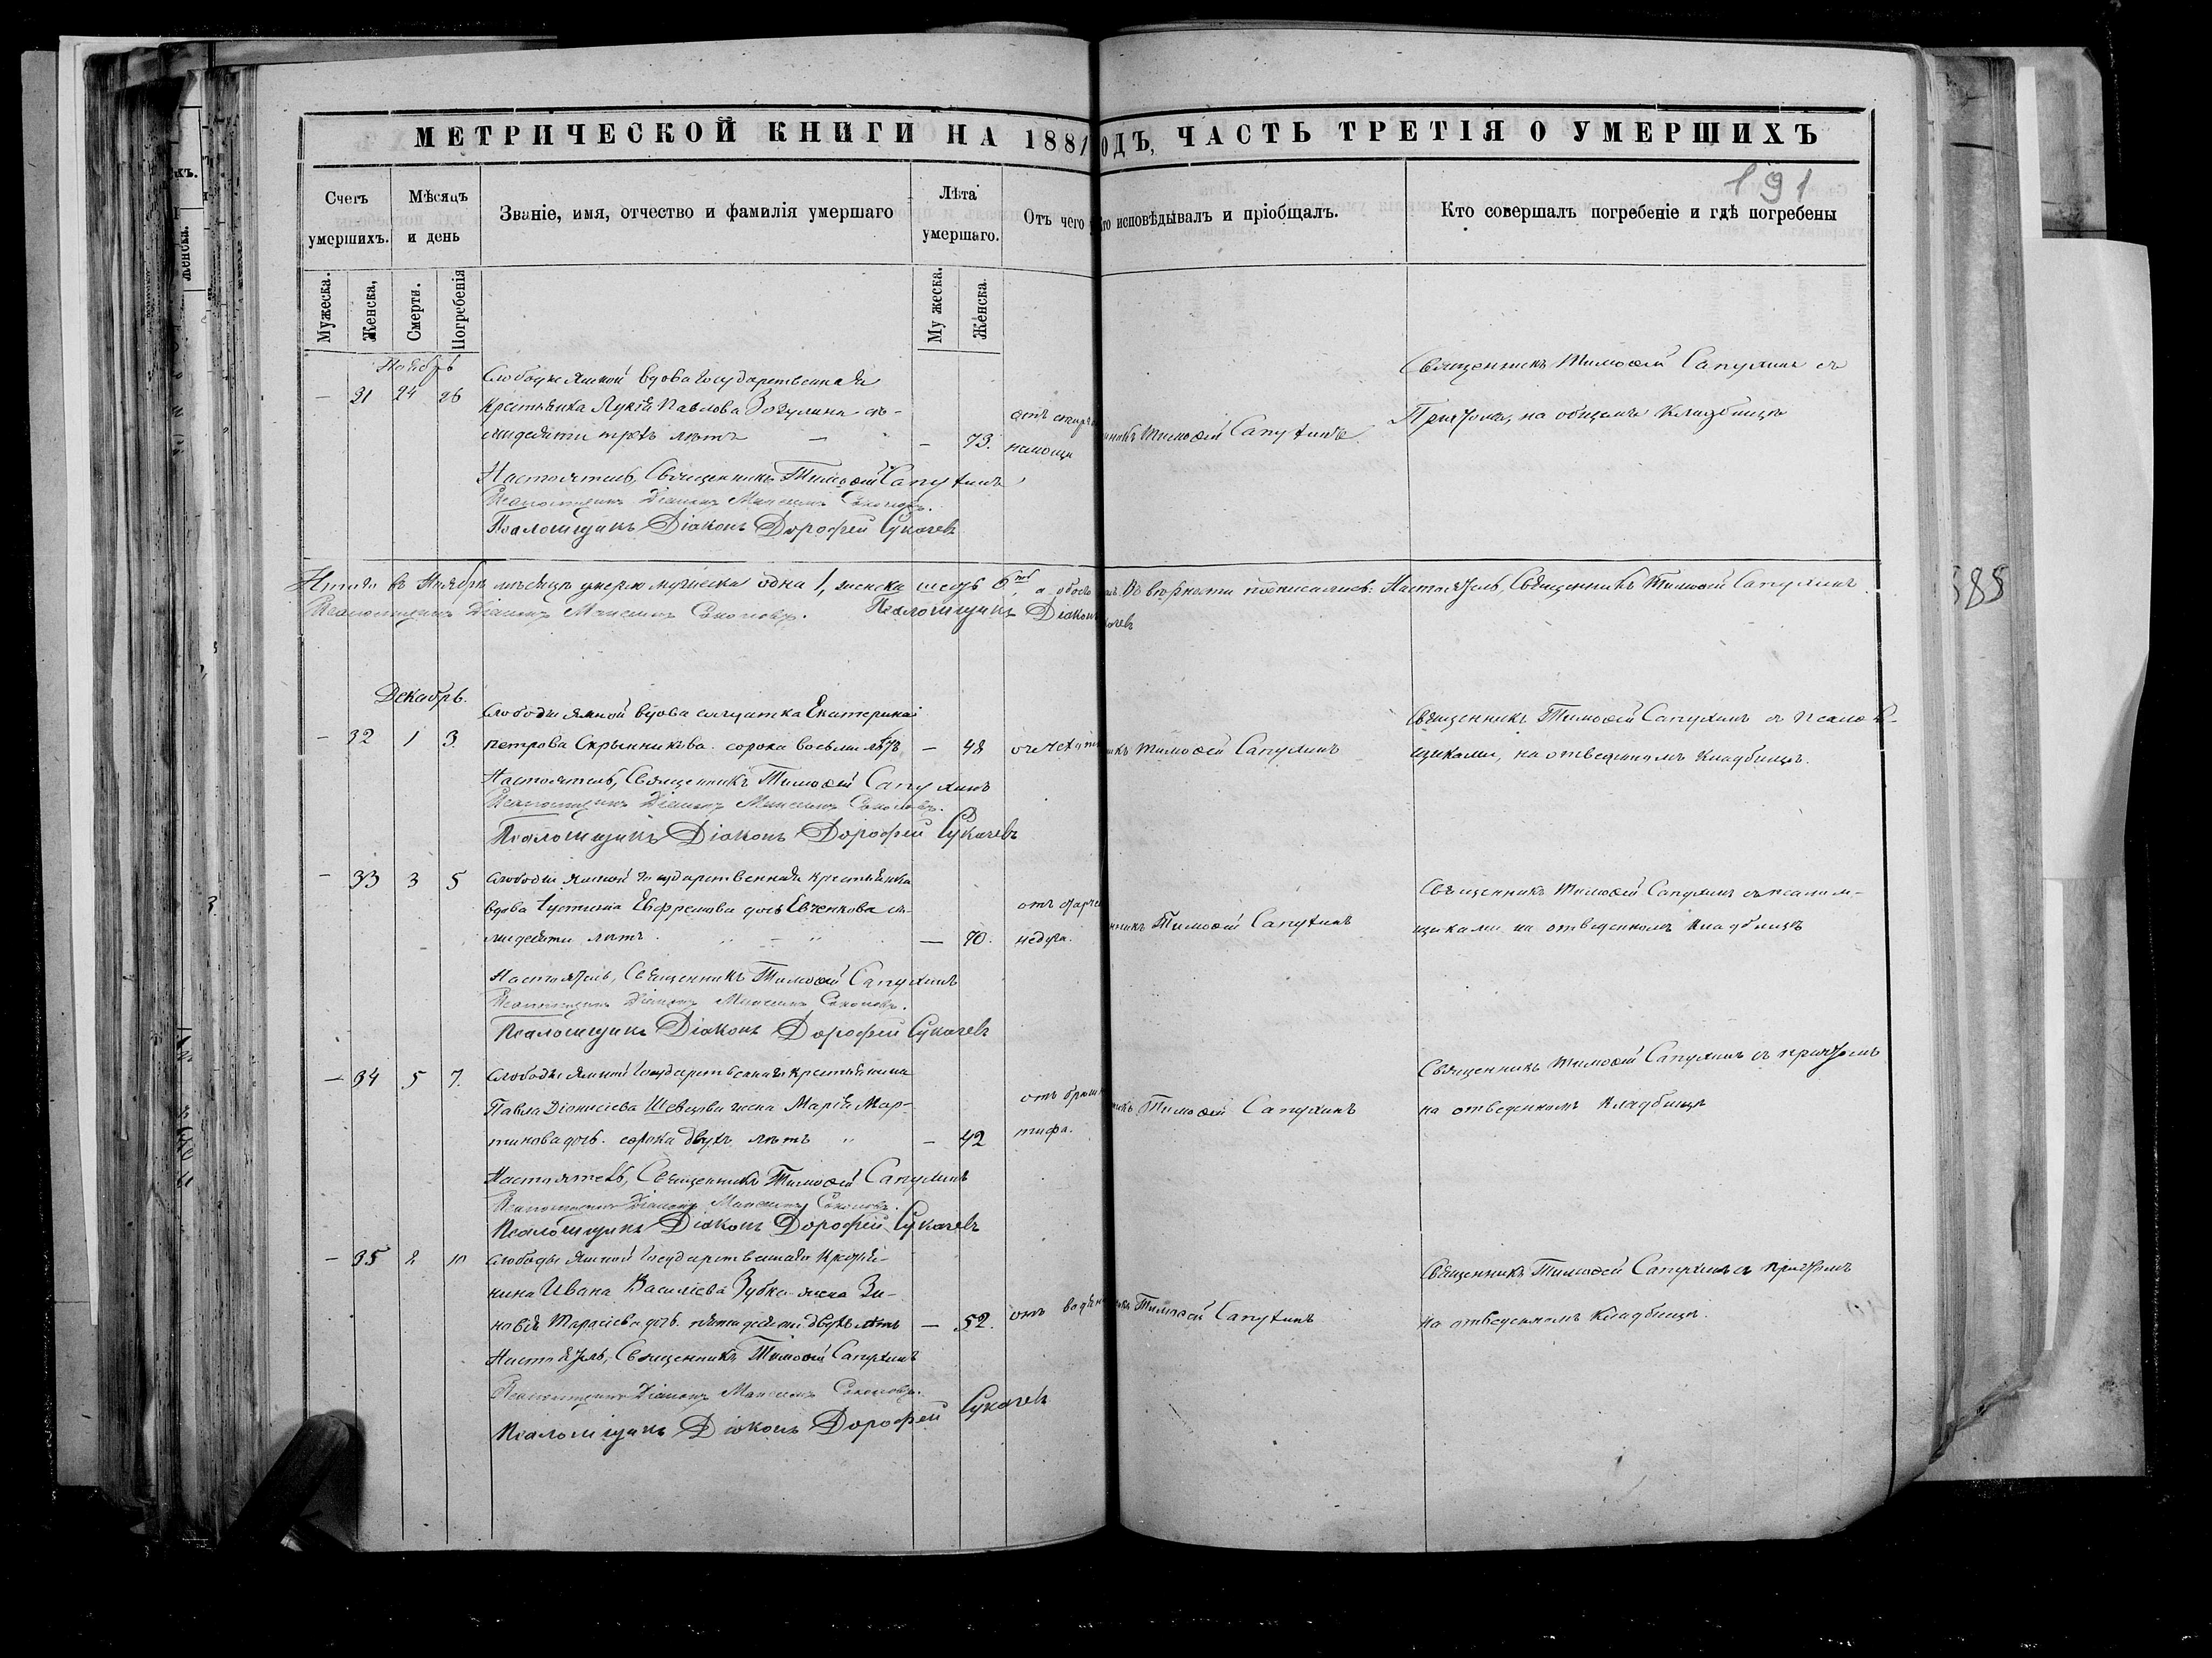 МЕТРИЧЕСКОЙ КНИГИ НА 1881 ОДЪ, ЧАСТЬ ТРЕТІЯ О УМЕРШИХЪ
191
Счетъ умершихъ.
Мѣсяцъ и день
Званіе, имя, отчество и фамилія умершаго
Лѣта умершаго.
Отъ чего
исповѣдывалъ и пріобщалъ.
Кто совершалъ погребеніе и гдѣ погребены
Мужеска.
Женска,
Смерти.
Погребенія
Му жеска.
Женска.
Ноябрь
Слободы Ямной вдова Государственная
— 31 24 26 крестьянка Лукія Павлова се-
мидесяти трехъ лѣтъ — 73.
Священникъ Тимоѳей Сапухинъ съ
Причтомъ, на общемъ кладбищѣ
Тимоѳей Сапухинъ
Настоятель, Священникъ Тимоѳей Сапухинъ
Псаломщикъ Діаконъ Соколовъ.
Псаломщикъ Діаконъ Дорофей Сукачевъ
Итого въ Ноябрѣ мѣсяцѣ умерло мужеска одна 1, женска шесть 6, а обоего
вѣрности подписались: Настоятель, Священникъ Тимоѳей Сапухинъ
Псаломщикъ Діаконъ Соколовъ. Псаломщикъ Діаконъ
Декабрь.
Слободы Ямной вдова солдатка Екатерина
— 32 1 3 Петрова Скрынникова сорока восьми лѣтъ — 48
Тимоѳей Сапухинъ
Священникъ Тимоѳей Сапухинъ съ псалом-
щиками, на отведенномъ кладбищѣ.
Настоятель, Священникъ Тимоѳей Сапухинъ
Псаломщикъ Діаконъ Соколовъ.
Псаломщикъ Діаконъ Дорофей Сукачевъ
— 33 3 5 Слободы Ямной Государственная крестьянка
вдова Іустина Евфремова дочь Евченкова се-
мидесяти лѣтъ. — 70.
отъ
недуга.
Тимоѳей Сапухинъ
Священникъ Тимоѳей Сапухинъ съ псалом-
щиками на отведенномъ кладбищѣ
Настоятель, Священникъ Тимоѳей Сапухинъ
Псаломщикъ Діаконъ Соколовъ.
Псаломщикъ Діаконъ Дорофей Сукачевъ
— 34 5 7. Слободы Ямной Государственнаго крестьянина
Павла Діонисіева Шевцова жена Марія Мар-
тинова дочь. сорока двухъ лѣтъ — 42
отъ
тифа.
Тимоѳей Сапухинъ
Священникъ Тимоѳей Сапухинъ съ причтомъ
на отведенномъ кладбищѣ
Настоятель, Священникъ Тимоѳей Сапухинъ
Псаломщикъ Діаконъ Соколовъ.
Псаломщикъ Діаконъ Дорофей Сукачевъ
— 35 8 10 Слободы Ямной Государственнаго крестья-
нина Ивана Василіева Зубка жена Зи-
новія Тарасіева дочь. пятидесяти двухъ лѣтъ — 52.
отъ
Тимоѳей Сапухинъ
Священникъ Тимоѳей Сапухинъ съ причтомъ
на отведенномъ кладбищѣ.
Настоятель, Священникъ Тимоѳей Сапухинъ
Псаломщикъ Діаконъ Соколовъ.
Псаломщикъ Діаконъ Дорофей Сукачевъ